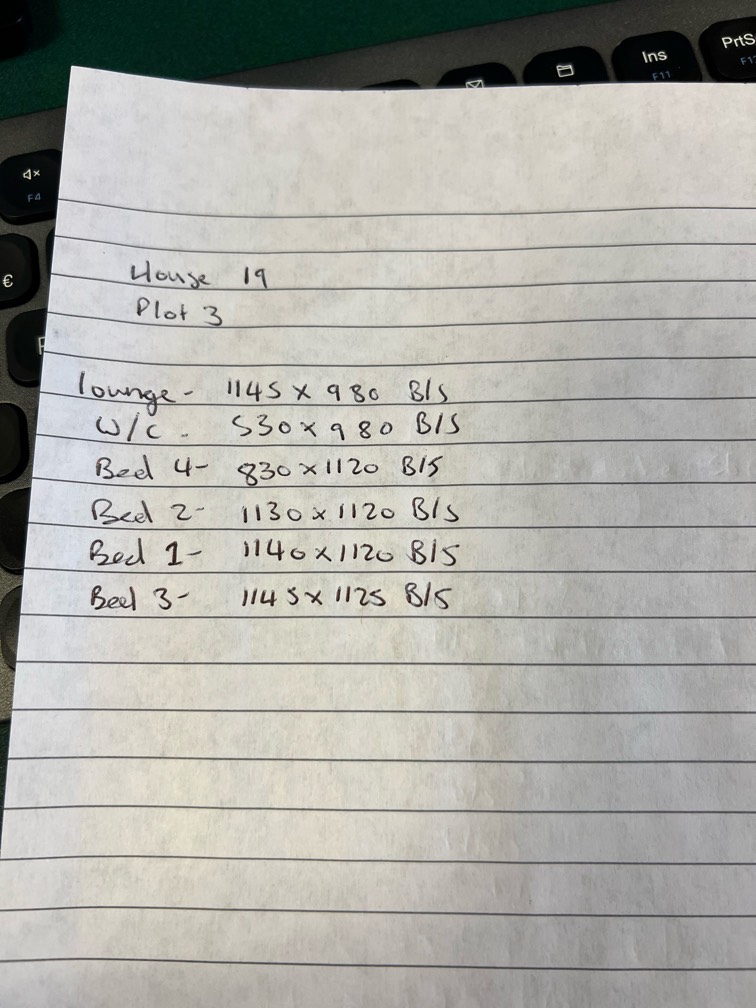 Ins
F11
PrtS
F12
F4
€
House 19
Plot 3
lounge - 1145 x 980 B/S
W/C - 530 x 980 B/S
Bed 4 - 830 x 1120 B/S
Bed 2 - 1130 x 1120 B/S
Bed 1 - 1140 x 1120 B/S
Bed 3 - 1145 x 1125 B/S